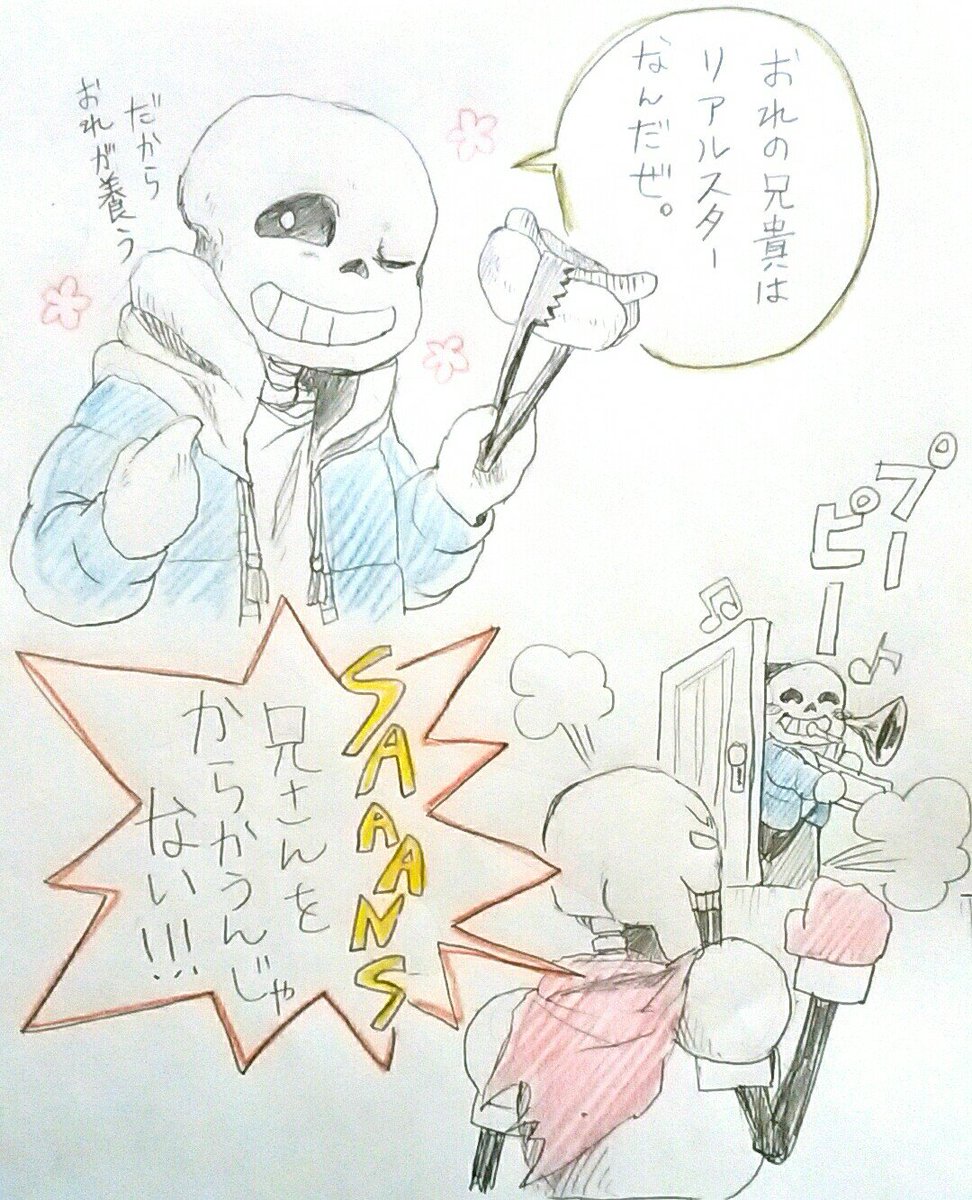 おれの兄貴は
リアルスター
なんだぜ。
だから
おれが養う
プー
ピー
SAAAANS
兄さんを
からかうんじゃ
ない!!!